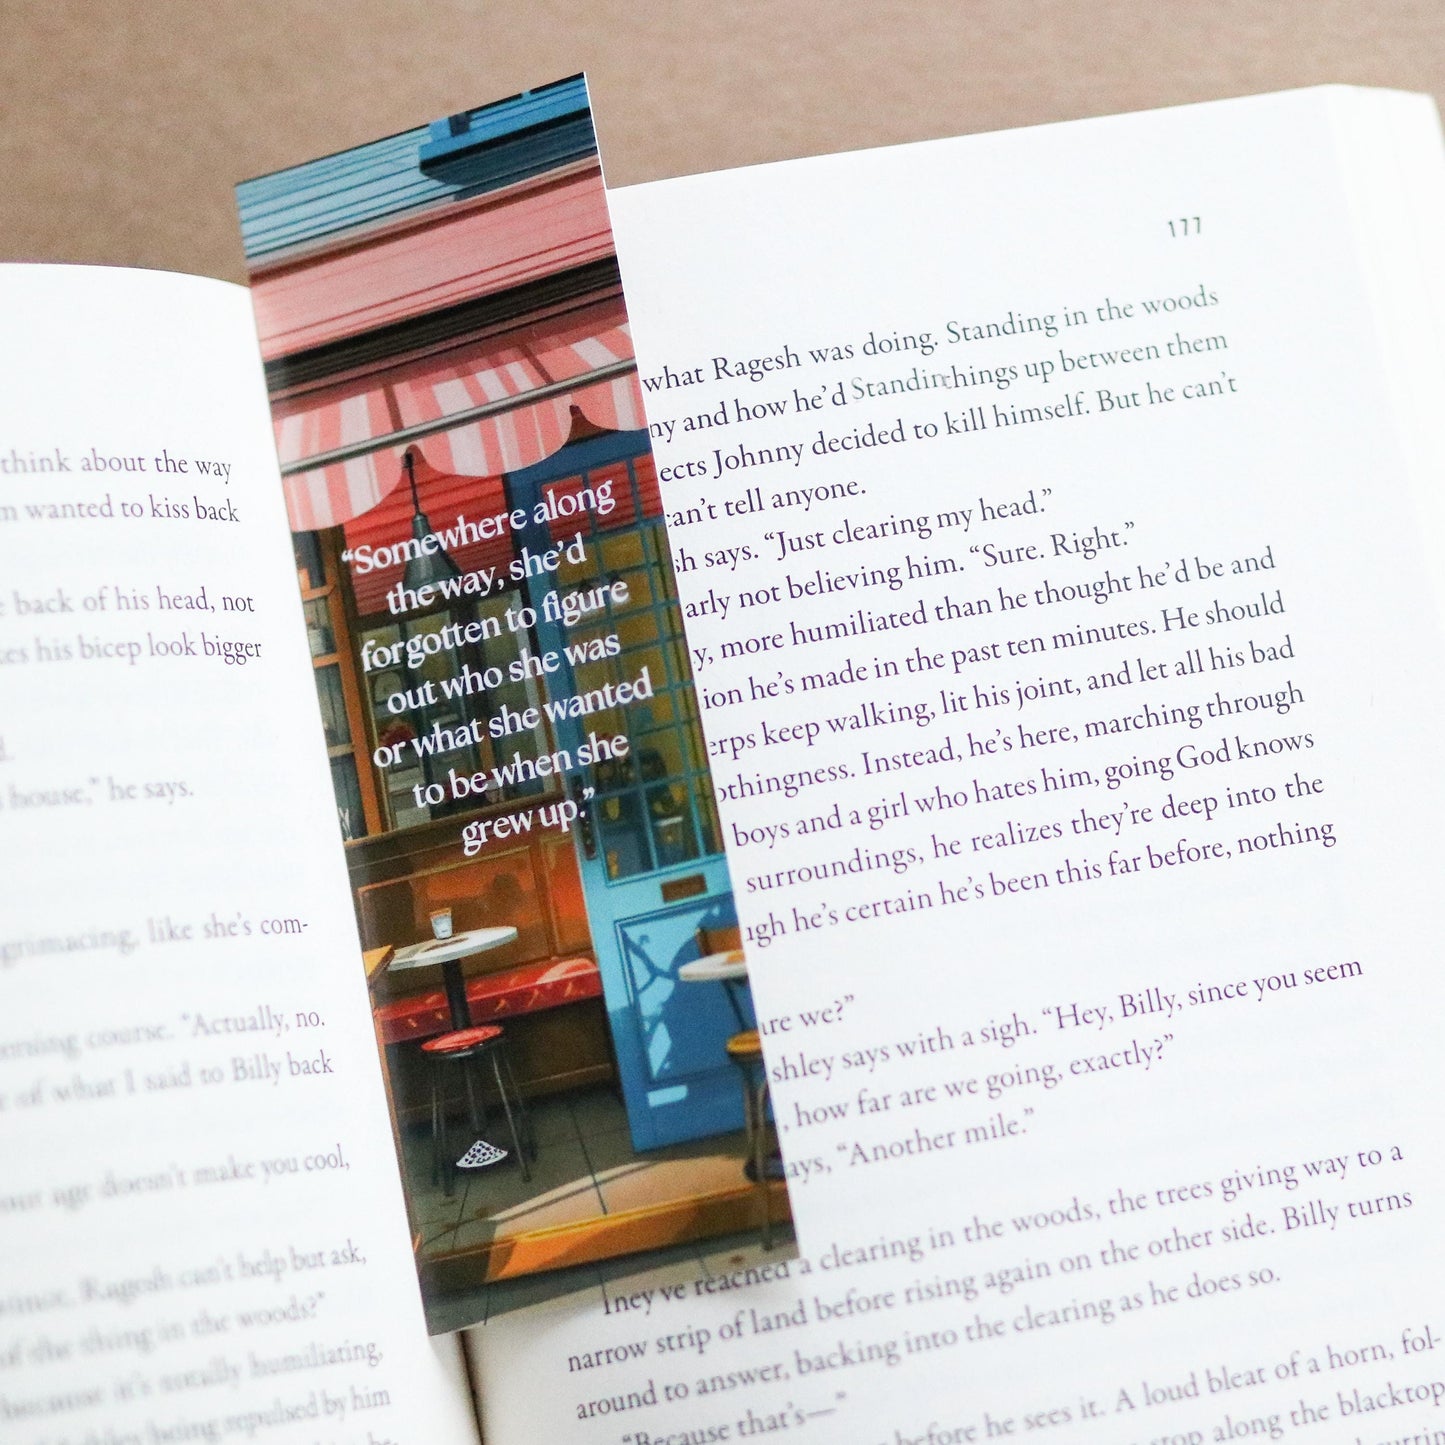 think about the way
wanted to kiss back
back of his head, not
his bicep look bigger
house," he says.
grimacing, like she's com-
course. "Actually, no.
of what I said to Billy back
age doesn't make you cool,
Ragesh can't help but ask,
thing in the woods?"
because it's totally humiliating,
being repulsed by him
“Somewhere along
the way, she’d
forgotten to figure
out who she was
or what she wanted
to be when she
grew up.”
177
what Ragesh was doing. Standing in the woods
ny and how he’d Standin things up between them
ects Johnny decided to kill himself. But he can’t
can’t tell anyone.
sh says. “Just clearing my head.”
arly not believing him. “Sure. Right.”
y, more humiliated than he thought he’d be and
ion he’s made in the past ten minutes. He should
erps keep walking, lit his joint, and let all his bad
othingness. Instead, he’s here, marching through
boys and a girl who hates him, going God knows
surroundings, he realizes they’re deep into the
ugh he’s certain he’s been this far before, nothing
are we?”
shley says with a sigh. “Hey, Billy, since you seem
, how far are we going, exactly?”
ays, “Another mile.”
They’ve reached a clearing in the woods, the trees giving way to a
narrow strip of land before rising again on the other side. Billy turns
around to answer, backing into the clearing as he does so.
“Because that’s—”
before he sees it. A loud bleat of a horn, fol-
stop along the blacktop